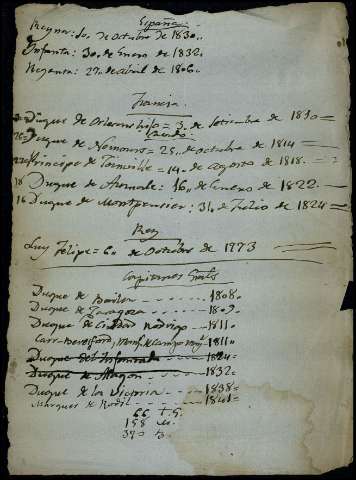 España
Reyna: 10. de Octubre de 1830.
Infanta: 30. de Enero de 1832.
Regenta: 27. de abril de 1806.
Francia
Duque de Orleans hijo = 3. de Setiembre de 1810 =
Duque de Nemours = 25. de octubre de 1814 =
Principe de Joinville = 14. de agosto de 1818. =
18 Duque de Aumale: 16. de Enero de 1822. =
16 Duque de Montpensier: 31. de Julio de 1824 =
Rey
Luis Felipe = 6. de Octubre de 1773
Capitanes Grales
Duque de Bailen - - - - 1808.
Duque de Zaragoza - - - 1809.
Duque de Ciudad Rodrigo - - - 1811.
Carr. Beresford, 1811.
Duque del Infantado - - - 1824.
Duque de - - - 1832.
Duque de la Victoria - - - 1838.
Marques de Rodil - - - 1841.
66 t.
158
390